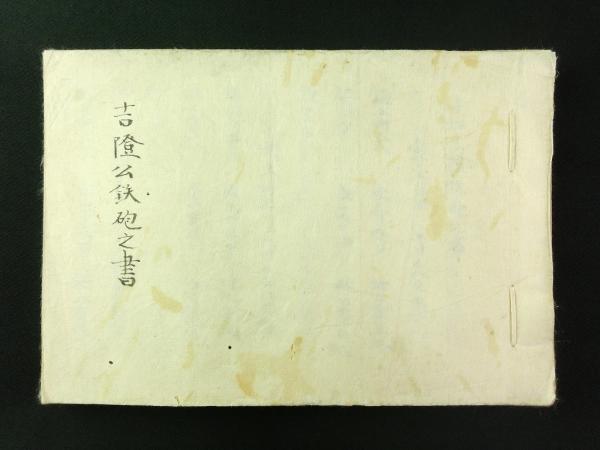 吉隥公鉄砲之書